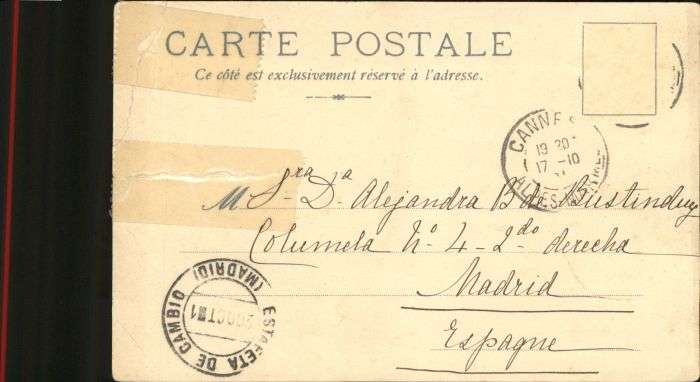 CARTE POSTALE
Ce côté est exclusivement réservé à l'adresse.
CANNES
19 30
17 -10
ALPES
M Sra Da Alejandra B de Bustinduy
Columela No 4-2do derecha
Madrid
Espagne
ESTAFETA DE CAMBIO
(MADRID)
OCT